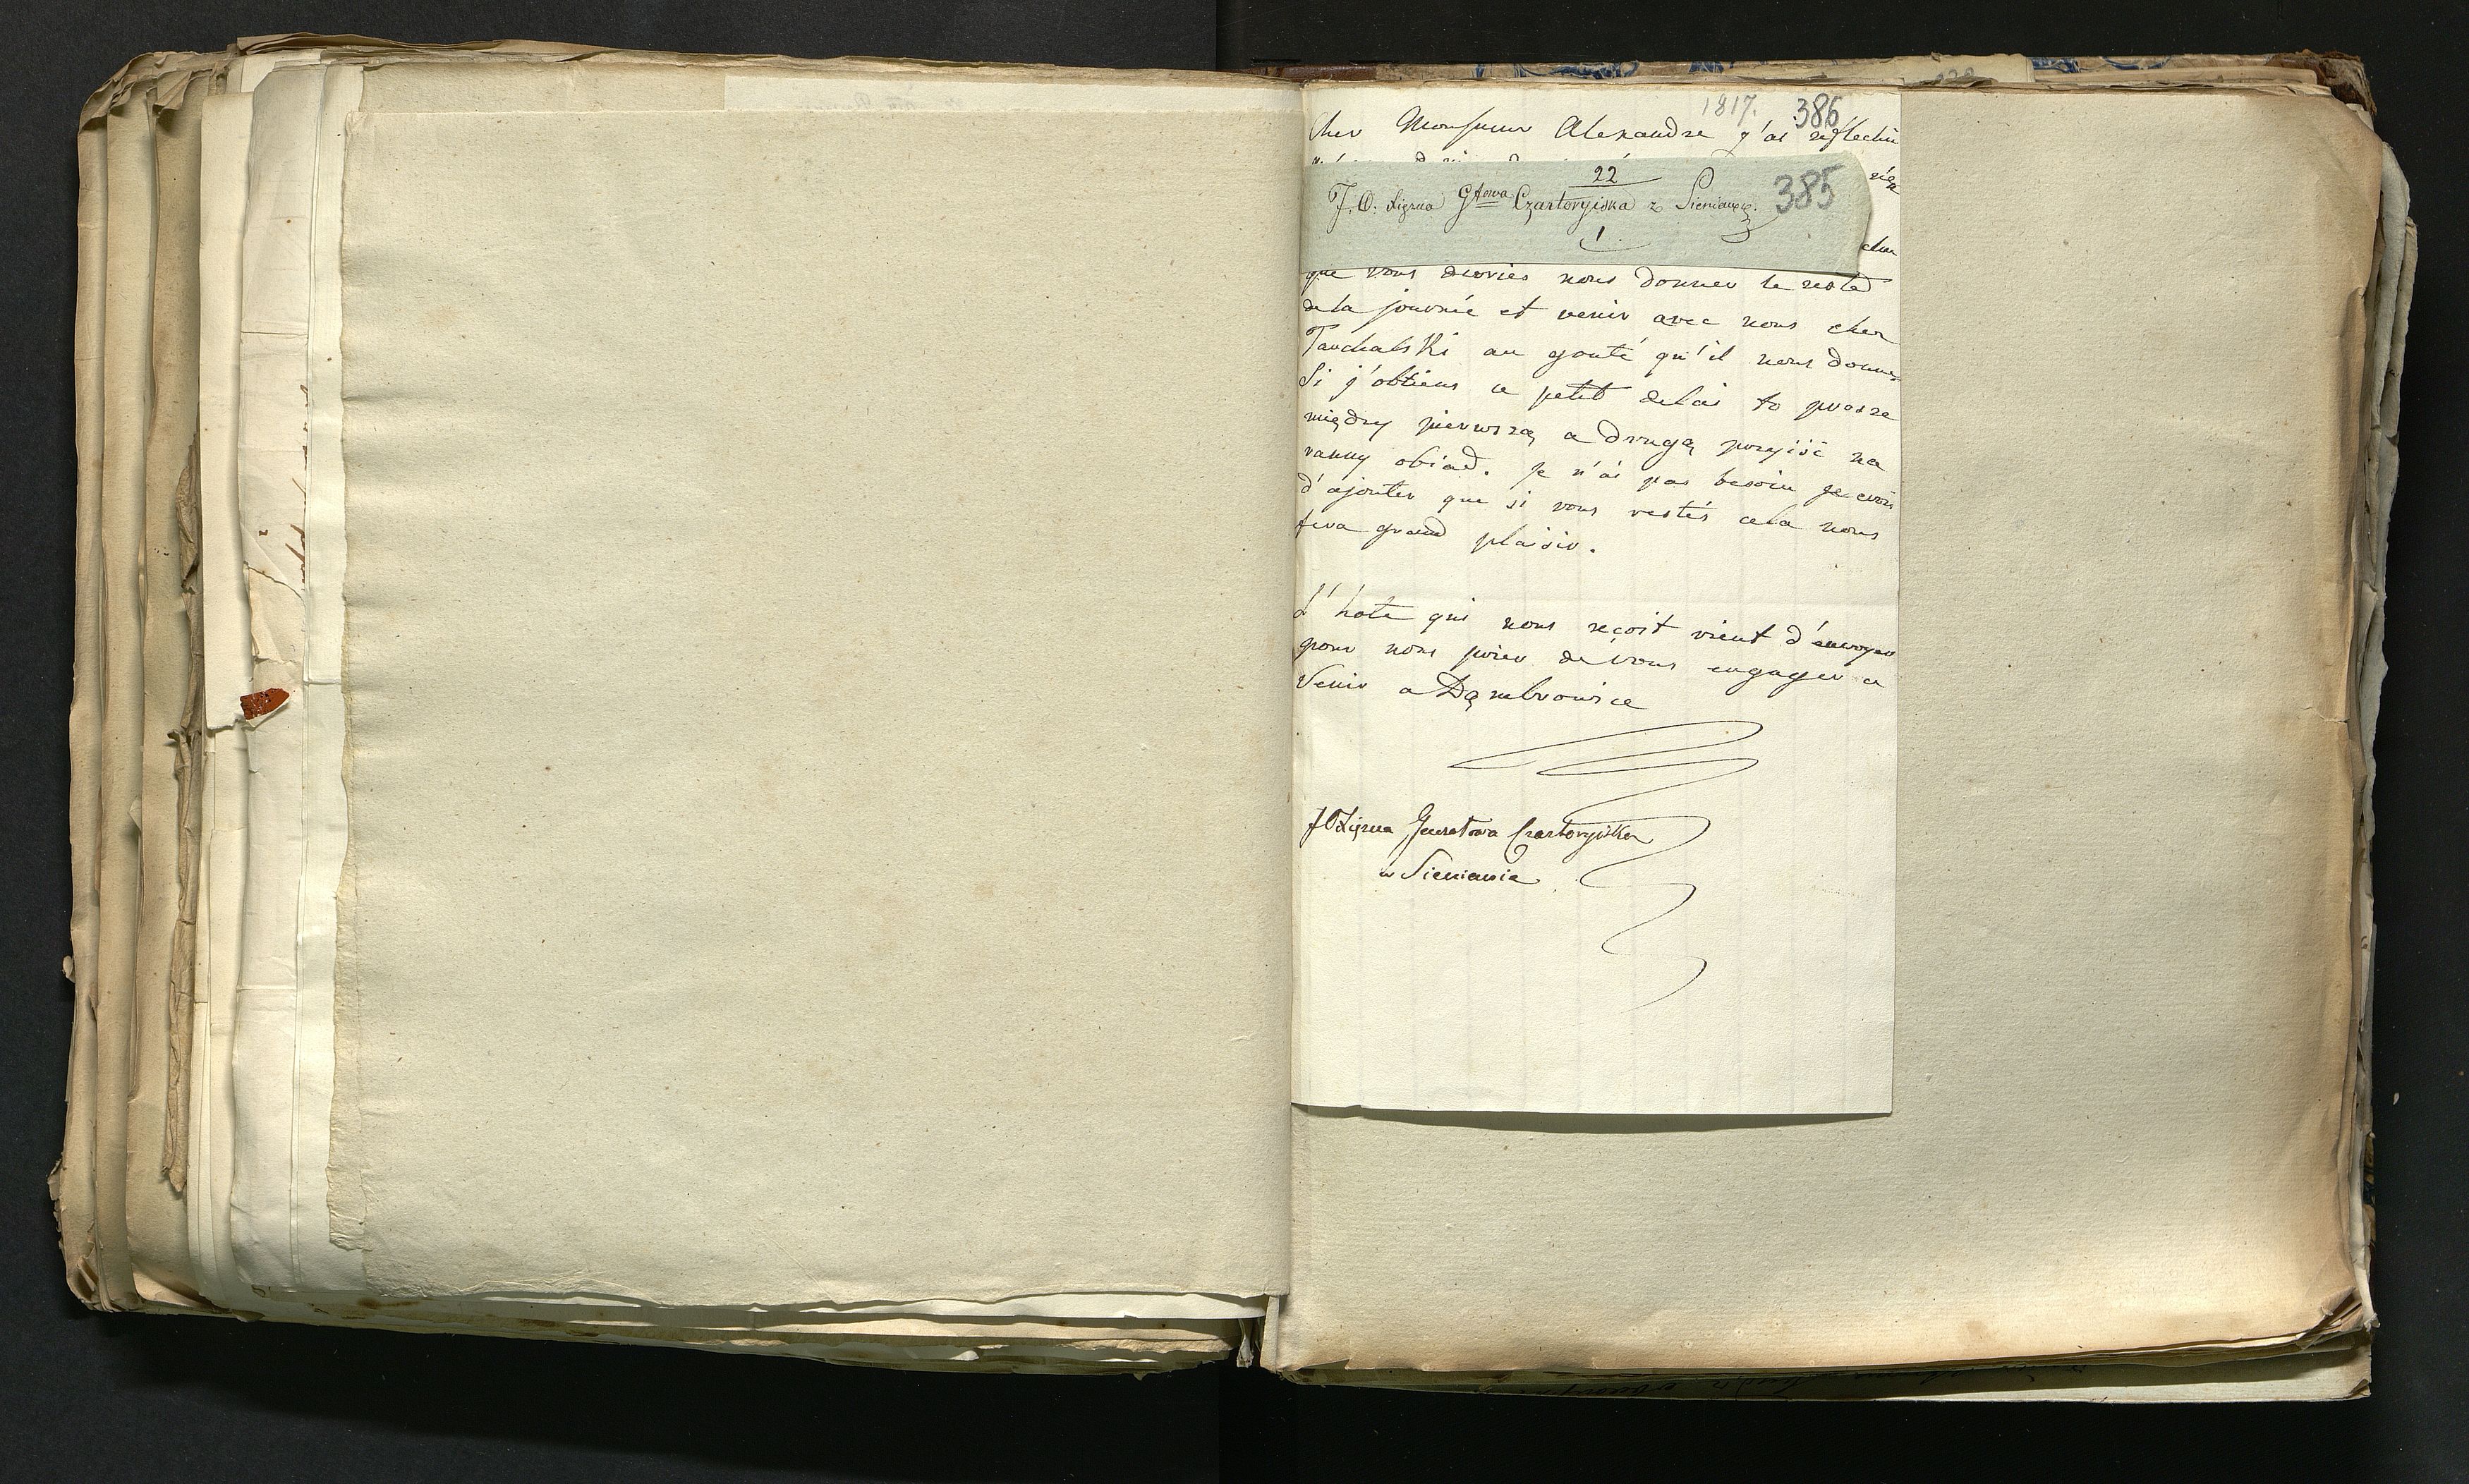 1817. 386
Cher Monsieur Alexandre j'ai reflechi
rien
22
J. O. Xiężna Głowa Czartoryiska z Sieniawy. 385
1.
cher
que vous devriés nous donner le reste
de la journée et venir avec nous cher
au gouté qu'il nous donne
Si j'obtiens ce petit delai to prosze
między pierwszą a drugą przyiść na
ranny obiad. je n'ai pas besoin je crois
d'ajouter que si vous restés cela nous
fera grand plaisir.
L'hote qui nous reçoit vient d'envoyer
pour nous prier de vous engager a
Venir a Dąmbrowice
JO Xiężna Generałowa Czartoryiska
w Sieniawie